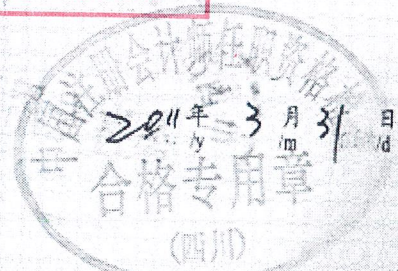 中国注册会计师任职资格检
2011年 3月 31日
/y /m /d
合格专用章
(四川)